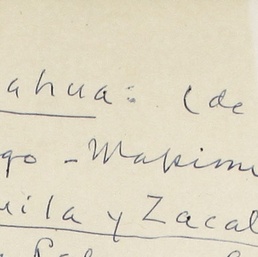 ahua: (de
go - Makime
uila y Zacal